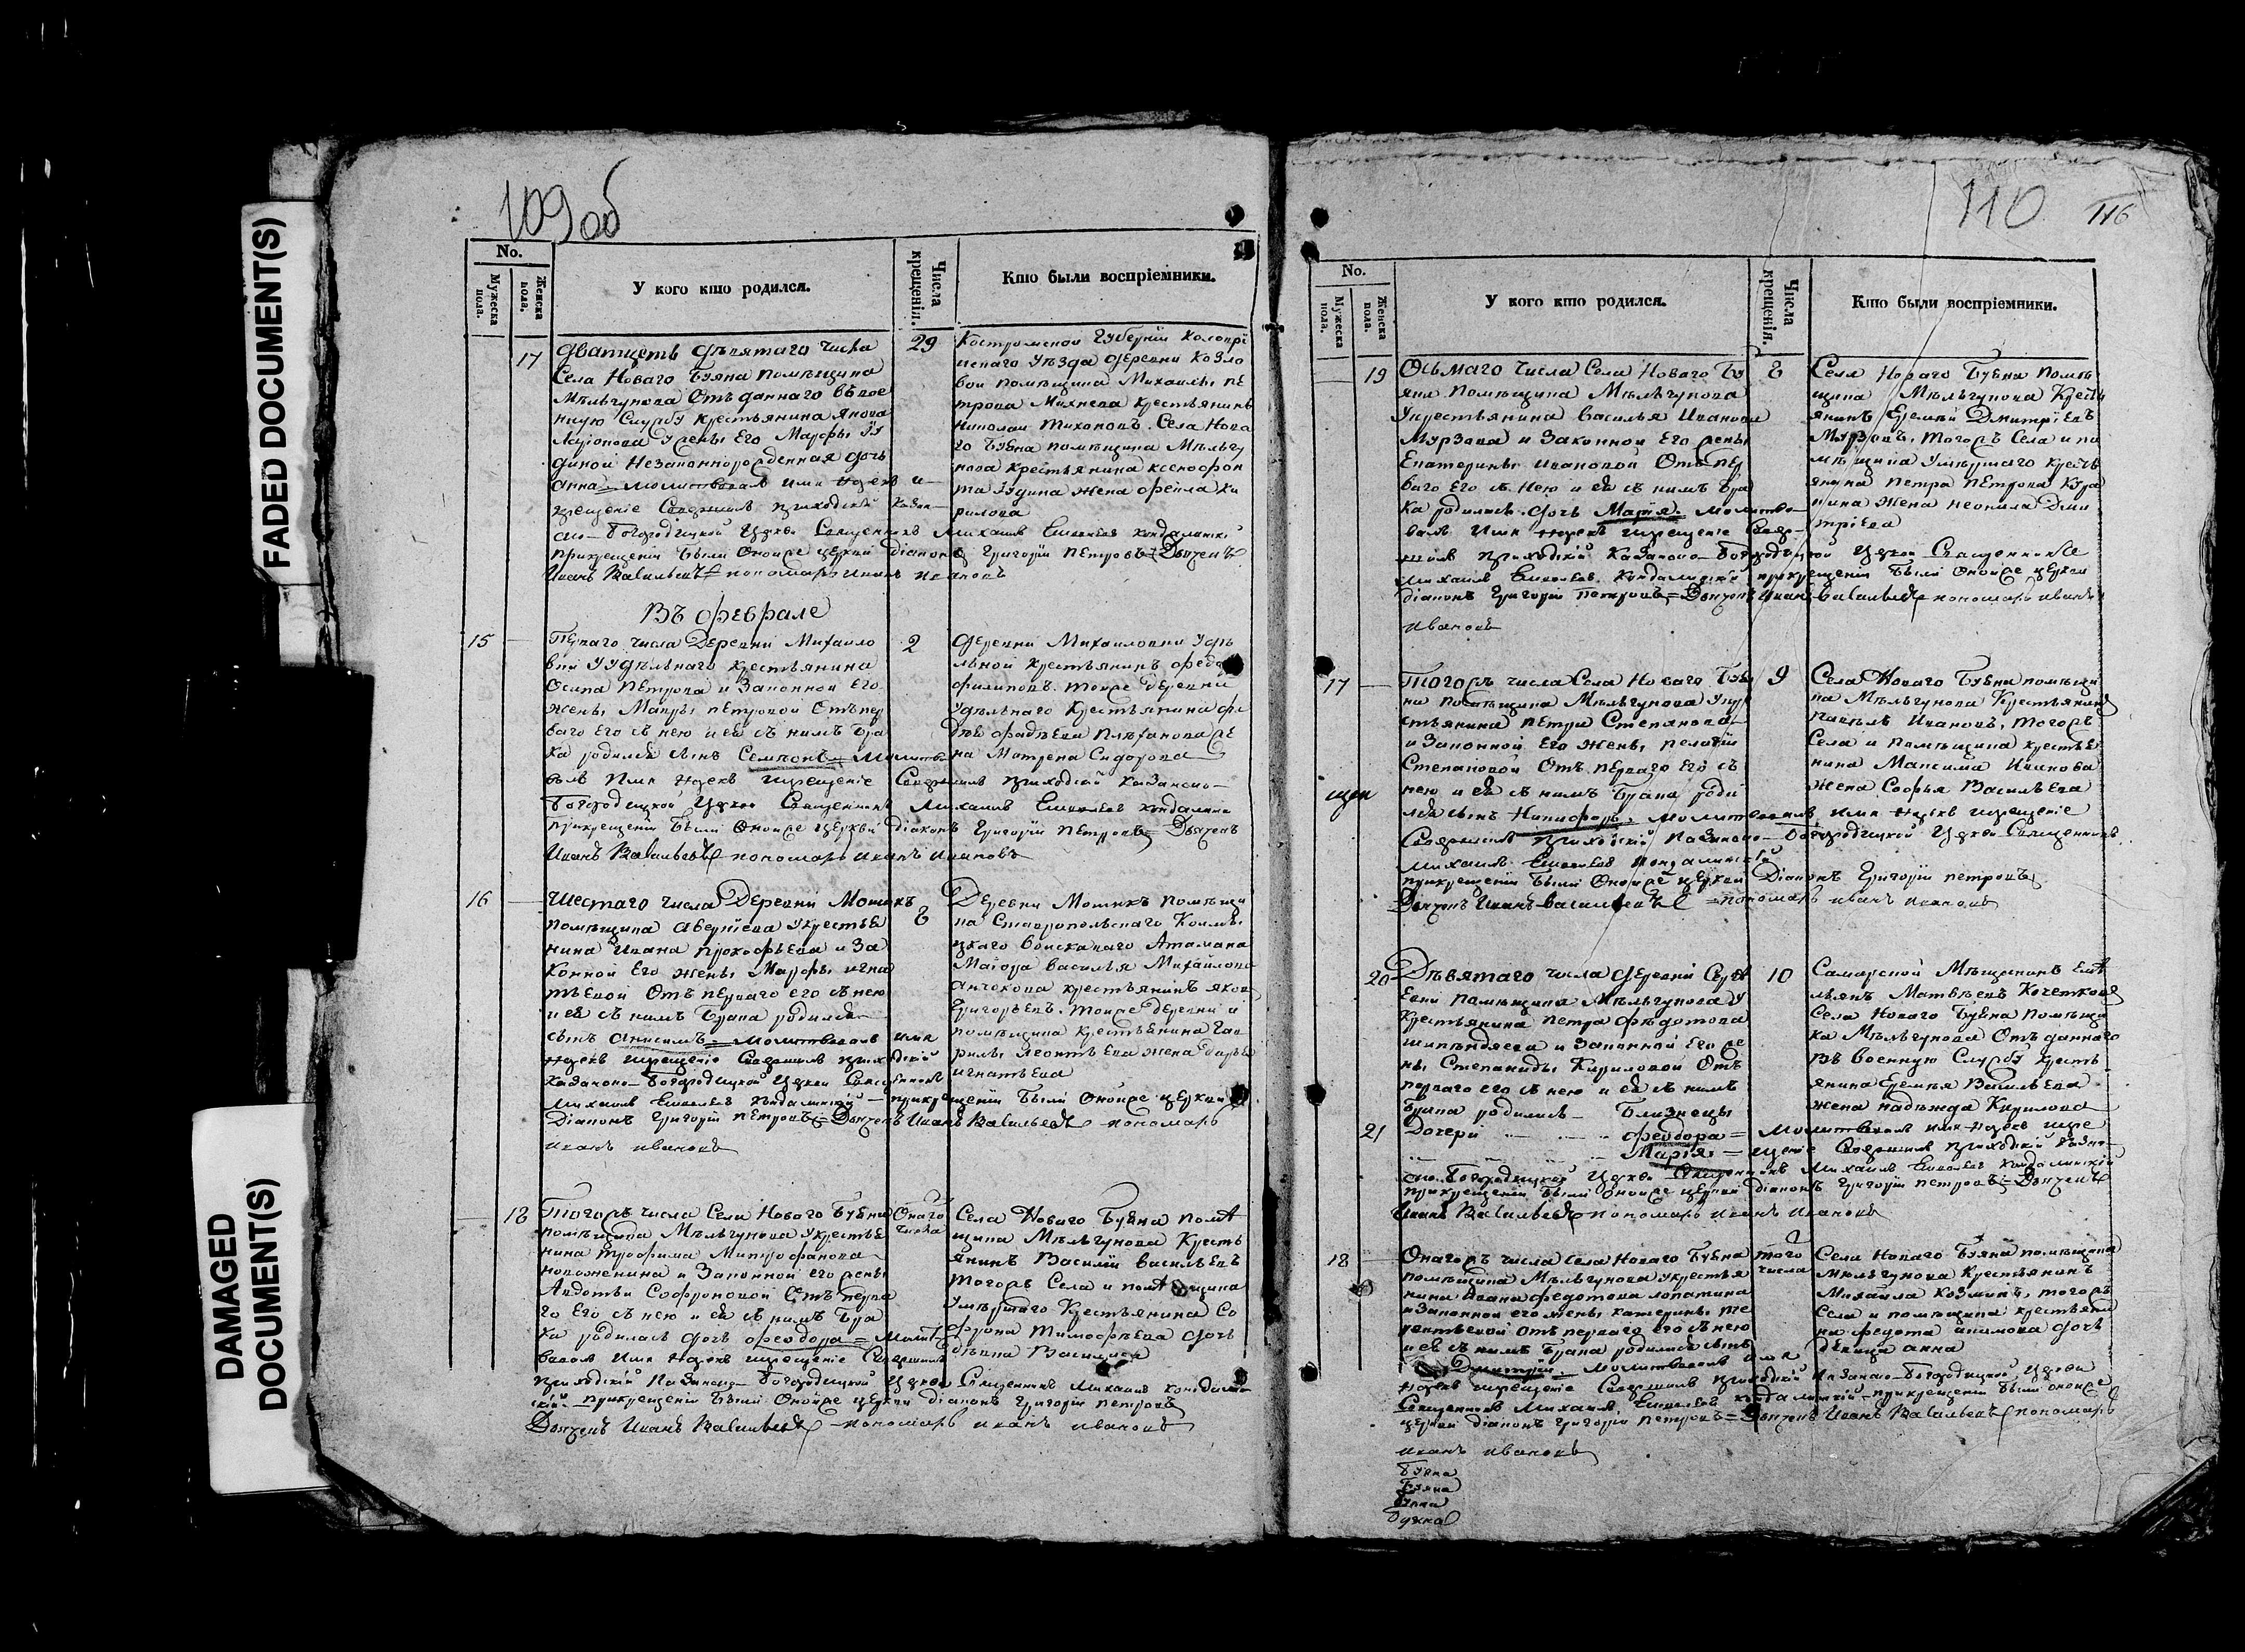 FADED DOCUMENT(S)
DAMAGED
DOCUMENT(S)
109 об
No.
Мужеска пола.
Женска пола.
У кого кто родился.
Числа крещенія.
Кто были воспріемники.
17
Дватцеть девятаго числа
Села Новаго Буяна помѣщика
Мѣльгунова Отъ даннаго въ вое
ную Службу крестьянина
Ларіонова жены Его Марфы
Незаконнорожденная дочь
Анна = молитвовалъ имя нарекъ и
крещеніе Совершилъ приходскій Казан
ско-Богородицкой Церкви Священникъ Михаилъ
прикрещеніи были Оноже церкви діаконъ Григорій Петровъ = Дьячекъ
Иванъ Васильевъ пономарь Иванъ Ивановъ
29
Костромской Губерніи
Уѣзда деревни Козло
вой помѣщика Михайлы Пе
трова Михнева крестьянинъ
Николай Тихоновъ. Села Нова
го Буяна помѣщика Мѣльгу
нова крестьянина Ксенофон
та Юдина жена Фекла Ки
рилова
Въ феврале
15
Перваго числа Деревни Михайло
вки удѣльнаго крестьянина
Осипа Петрова и Законной Его
жены Мавры Петровой Отъ пер
ваго Его съ нею и ея съ нимъ бра
ка родился сынъ Семионъ = Молитво
валъ Имя нарекъ икрещеніе Совершилъ приходской Казанско-
Богородицкой Церкви Священникъ Михаилъ
прикрещеніи были Оноже церкви діаконъ Григорій Петровъ = Дьячекъ
Иванъ Васильевъ пономарь Иванъ Ивановъ
2
Деревни Михайловки Удѣ
льной крестьянинъ
Филиповъ. тоже деревни
Удѣльнаго Крестьянина
же
на Матрена Сидорова
16
Шестаго числа Деревни
помѣщика Аверкіева у крестья
нина Ивана Прокофьева и За
конной Его жены Марфы Игна
тьевой Отъ перваго его съ нею
и ея съ нимъ брака родился
сынъ Анисимъ = Молитвовалъ имя
нарекъ икрещеніе Совершилъ приходскій
Казанско-Богородицкой Церкви Священникъ
Михаилъ прикрещеніи были Оноже церкви
Діаконъ Григорій Петровъ = Дьячекъ Иванъ Васильевъ пономарь
Иванъ Ивановъ
8
Деревни помѣщи
ка Ставропольскаго Калмы
цкаго войсковаго Атамана
Маіора Василья Михайлова
крестьянинъ Яковъ
Григорьевъ. тоже деревни и
помѣщика крестьянина Гав
рилы Леонтьева жена Дарья
Игнатьева
18
Тогожъ числа Села Новаго Буяна
помѣщика Мѣльгунова у крестья
нина Трофима Митрофанова
и Законной его жены
Авдотьи Софроновой Отъ перва
го Его съ нею и ея съ нимъ бра
ка родилась дочь Феодора = Молит
вовалъ Имя нарекъ икрещеніе Совершилъ
приходскій Казанско-Богородицкой Церкви Священникъ Михаилъ
прикрещеніи были Оноже церкви діаконъ Григорій Петровъ
Дьячекъ Иванъ Васильевъ пономарь Иванъ Ивановъ
Онаго
числа
Села Новаго Буяна помѣ
щика Мѣльгунова Кресть
янинъ Василій Васильевъ
Тогожъ Села и помѣщика
Умершаго Крестьянина Со
фрона Тимофѣева дочь
110
116
No.
Мужеска пола.
Женска пола.
У кого кто родился.
Числа крещенія.
Кто были воспріемники.
19
Осьмаго числа Села Новаго Бу
яна помѣщика Мѣльгунова
Укрестьянина Василья Иванова
Мурзова и Законной Его жены
Екатерины Ивановой Отъ пер
ваго Его съ нею и ея съ нимъ бра
ка родилась дочь Марія. молитво
валъ Имя нарекъ икрещеніе Совер
шилъ приходскій Казанско-Богородицкой Церкви Священникъ
Михаилъ прикрещеніи были Оноже церкви
діаконъ Григорій Петровъ = Дьячекъ Иванъ Васильевъ пономарь Иванъ
Ивановъ
8
Села Новаго Буяна помѣ
щика Мѣльгунова Кресть
янинъ Еремѣй Дмитріевъ
Мурзовъ. тогожъ Села и по
мѣщика Умершаго кресть
янина Петра Петрова
жена Неонила Дми
тріева
17
Тогожъ числа Села Новаго Буя
на помѣщика Мѣльгунова Укре
стьянина Петра Степанова
и Законной Его жены Пелагіи
Степановой Отъ перваго Его съ
нею и ея съ нимъ брака роди
лся сынъ Никифоръ. молитвовалъ имя нарекъ икрещеніе
Совершилъ приходскій Казанско-Богородицкой Церкви Священникъ
Михаилъ
прикрещеніи были Оноже церкви Діаконъ Григорій Петровъ
Дьячекъ Иванъ Васильевъ = пономарь Иванъ Ивановъ
9
Села Новаго Буяна помѣщи
ка Мѣльгунова Крестьянинъ
Павелъ Ивановъ, тогожъ
Села и помѣщика крестья
нина Максима Иванова
жена Софья Васильева
20
Дѣвятаго числа деревни
помѣщика Мѣльгунова у
крестьянина Петра Федотова
и Законной Его же
ны Степаниды Кириловой Отъ
перваго его съ нею и ея съ нимъ
брака родились Близнецы
21
Дочери Феодора = Молитвовалъ имя нарекъ икре
Марія = щеніе Совершилъ приходскій Казан
ско-Богородицкой Церкви Священникъ Михаилъ
прикрещеніи были Оноже церкви діаконъ Григорій Петровъ = Дьячекъ
Иванъ Васильевъ пономарь Иванъ Ивановъ
10
Самарской Мѣщанинъ Емѣ
льянъ Матвѣевъ Кочетковъ
Села Новаго Буяна помѣщи
ка Мѣльгунова Отъ даннаго
въ военную Службу кресть
янина Еремѣя Васильева
жена Надежда Кирилова
18
Онагожъ числа Села Новаго Буяна
помѣщика Мѣльгунова укрестья
нина Ивана Федотова Лопатина
и Законной его жены Катерины Те
рентьевой Отъ перваго его съ нею
и ея съ нимъ брака родился сынъ
Дмитрій. Молитвовалъ имя
нарекъ икрещеніе Совершилъ приходскій Казанско-Богородицкой Церкви
Священникъ Михаилъ прикрещеніи были оноже
церкви діаконъ Григорій Петровъ = Дьячекъ Иванъ Васильевъ пономарь
Иванъ Ивановъ
того
числа
Села Новаго Буяна помѣщика
Мѣльгунова Крестьянинъ
Михайла Козминъ, тогожъ
Села и помѣщика крестьяни
на Федота Акимова дочь
девица Анна
Буяна
Буяна
Буяна
Буяна